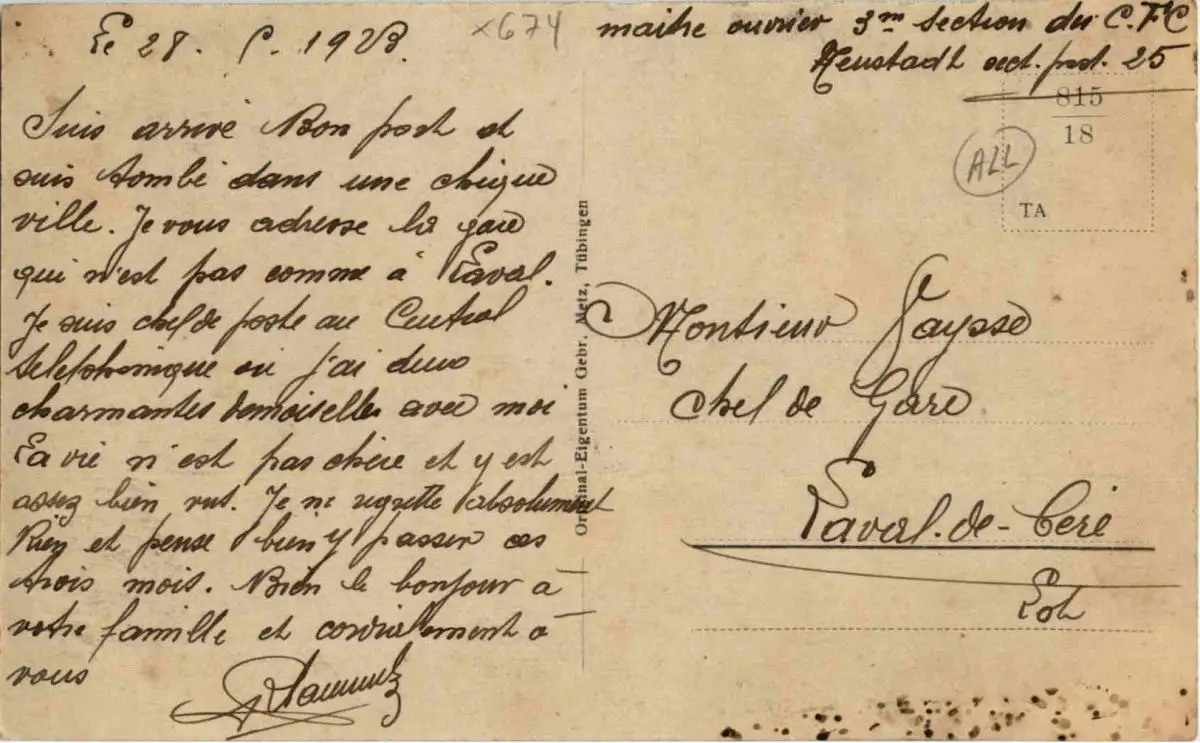 Le 28. 1923.
x674
maitre ouvrier 3me section du C.F.C
Neustadt sect. post. 25
815
18
ALL
TA
Suis arrivé Bon port et
suis tombé dans une chique
ville. Je vous adresse la gare
qui n'est pas comme à Laval.
Je suis chef de poste au Central
telephonique ou j'ai deux
charmantes demoiselles avec moi
La vie n'est pas chère et y est
assez bien vut. Je ne regrette absolument
Rien et pense bien y passer ces
trois mois. Bien le bonjour à
votre famille et cordialement à
vous
Original-Eigentum Gebr. Metz, Tübingen
Monsieur Vaysse
Chef de Gare
Laval-de-Cère
Lot